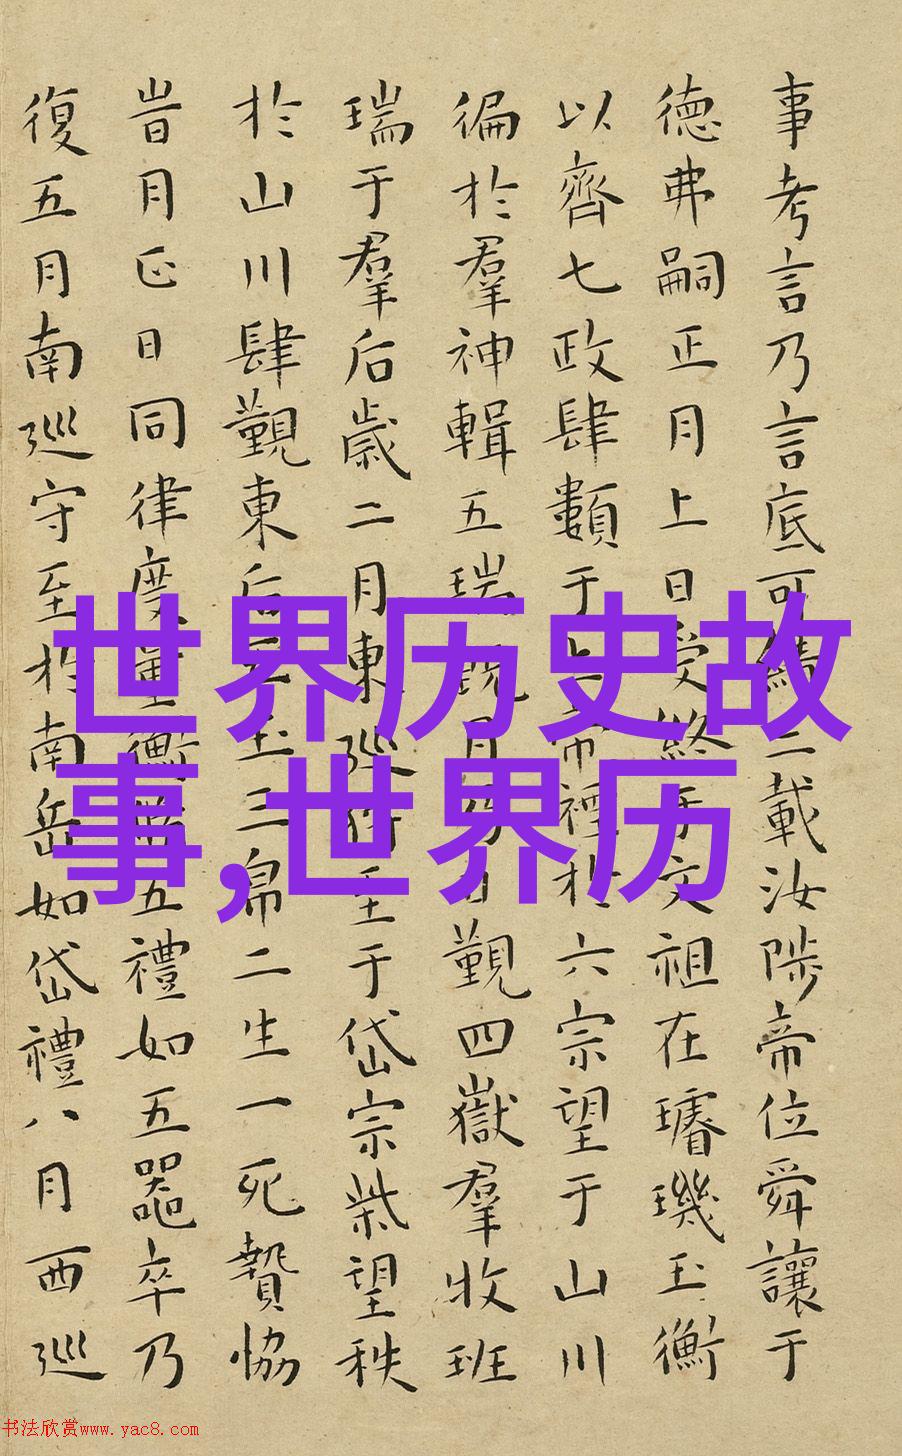 事考言乃言底可績三載汝陟帝位舜讓于
德弗嗣正月上日受終于文祖在璿璣玉衡
以齊七政肆類于上帝禋於六宗望于山川
徧於羣神輯五瑞既月乃日覲四嶽羣牧班
瑞于羣后歲二月東巡狩至于岱宗柴望秩
於山川肆覲東后五玉三帛二生一死贄協
旹月正日同律度量衡脩五禮如五器卒乃
復五月南巡守至於南岳如岱禮八月西巡
世界历史故
事,世界历
书法欣赏www.yac8.com